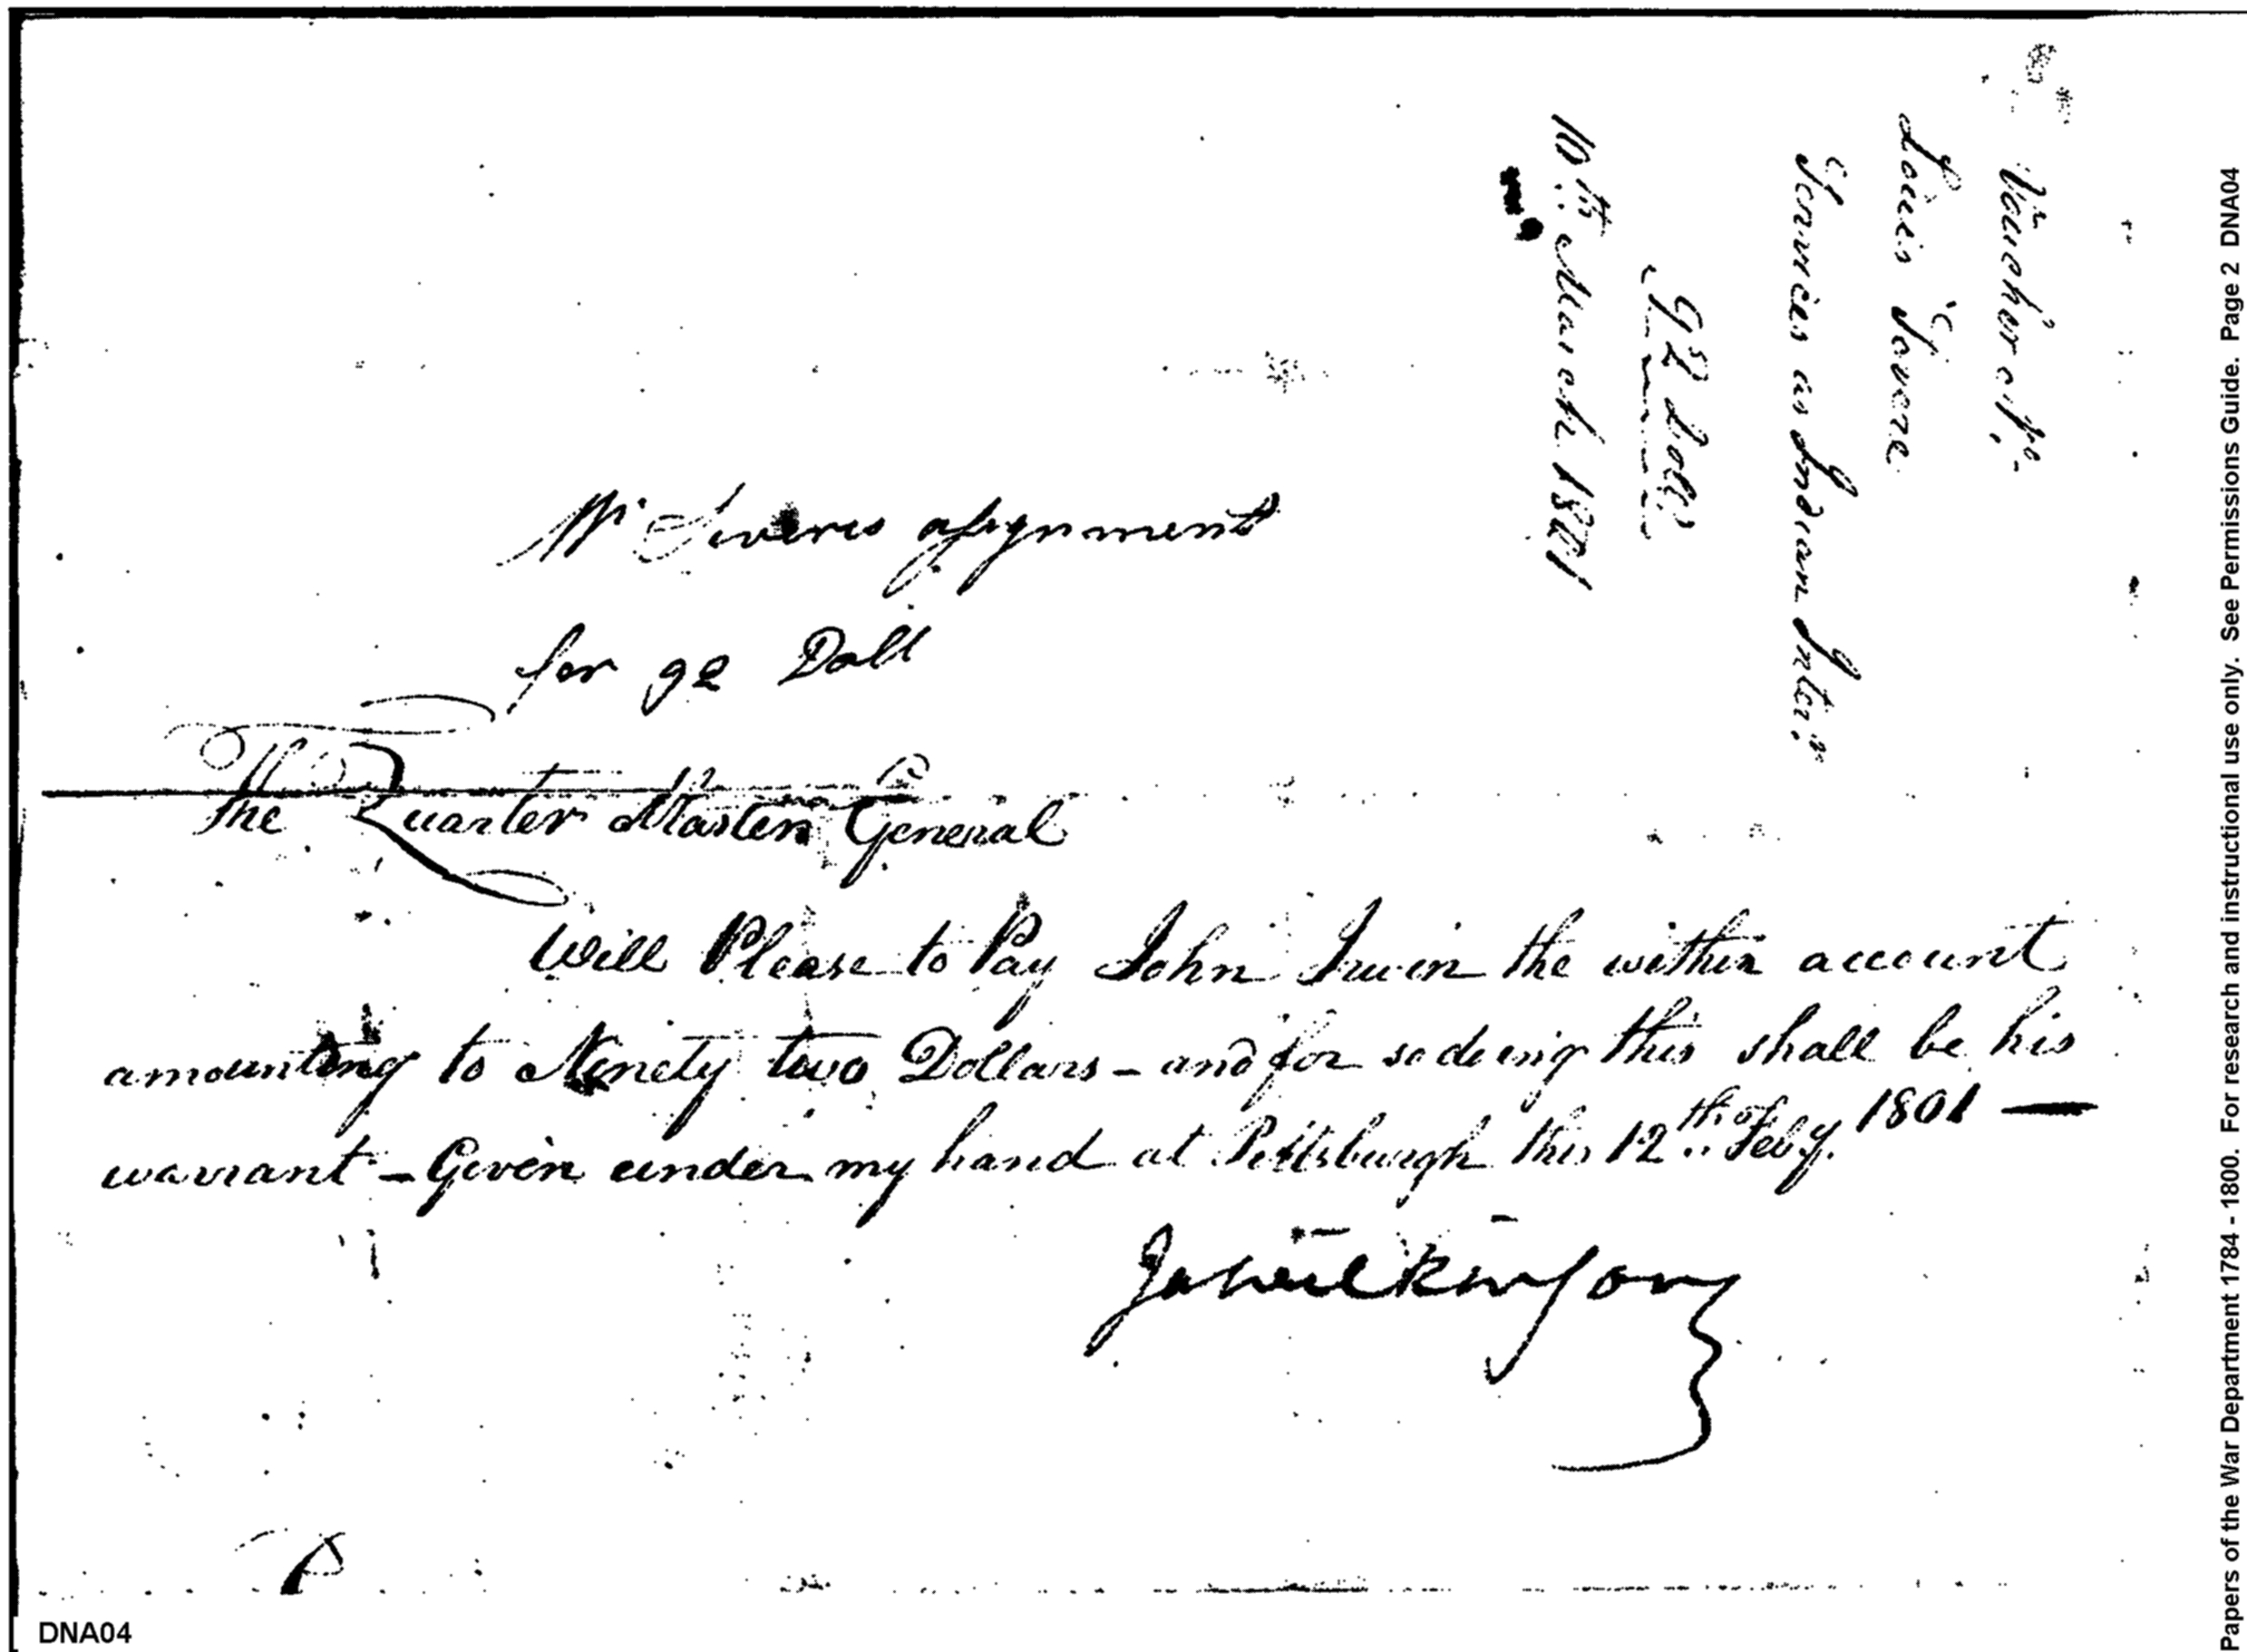 Voucher No.
Louis Sovere
Services as Indian Inter.r
92 Dolls
10th March 1801
Mr Soveres assignment
for 92 Doll
The Quarter Master General
Will Please to Pay John Irwin the within account
amounting to Ninety two Dollars - and for so doing this shall be his
warrant - Given under my hand at Pittsburgh this 12th of Feby. 1801 —
Ja Wilkinson
DNA04
Papers of the War Department 1784 - 1800. For research and instructional use only. See Permissions Guide. Page 2 DNA04